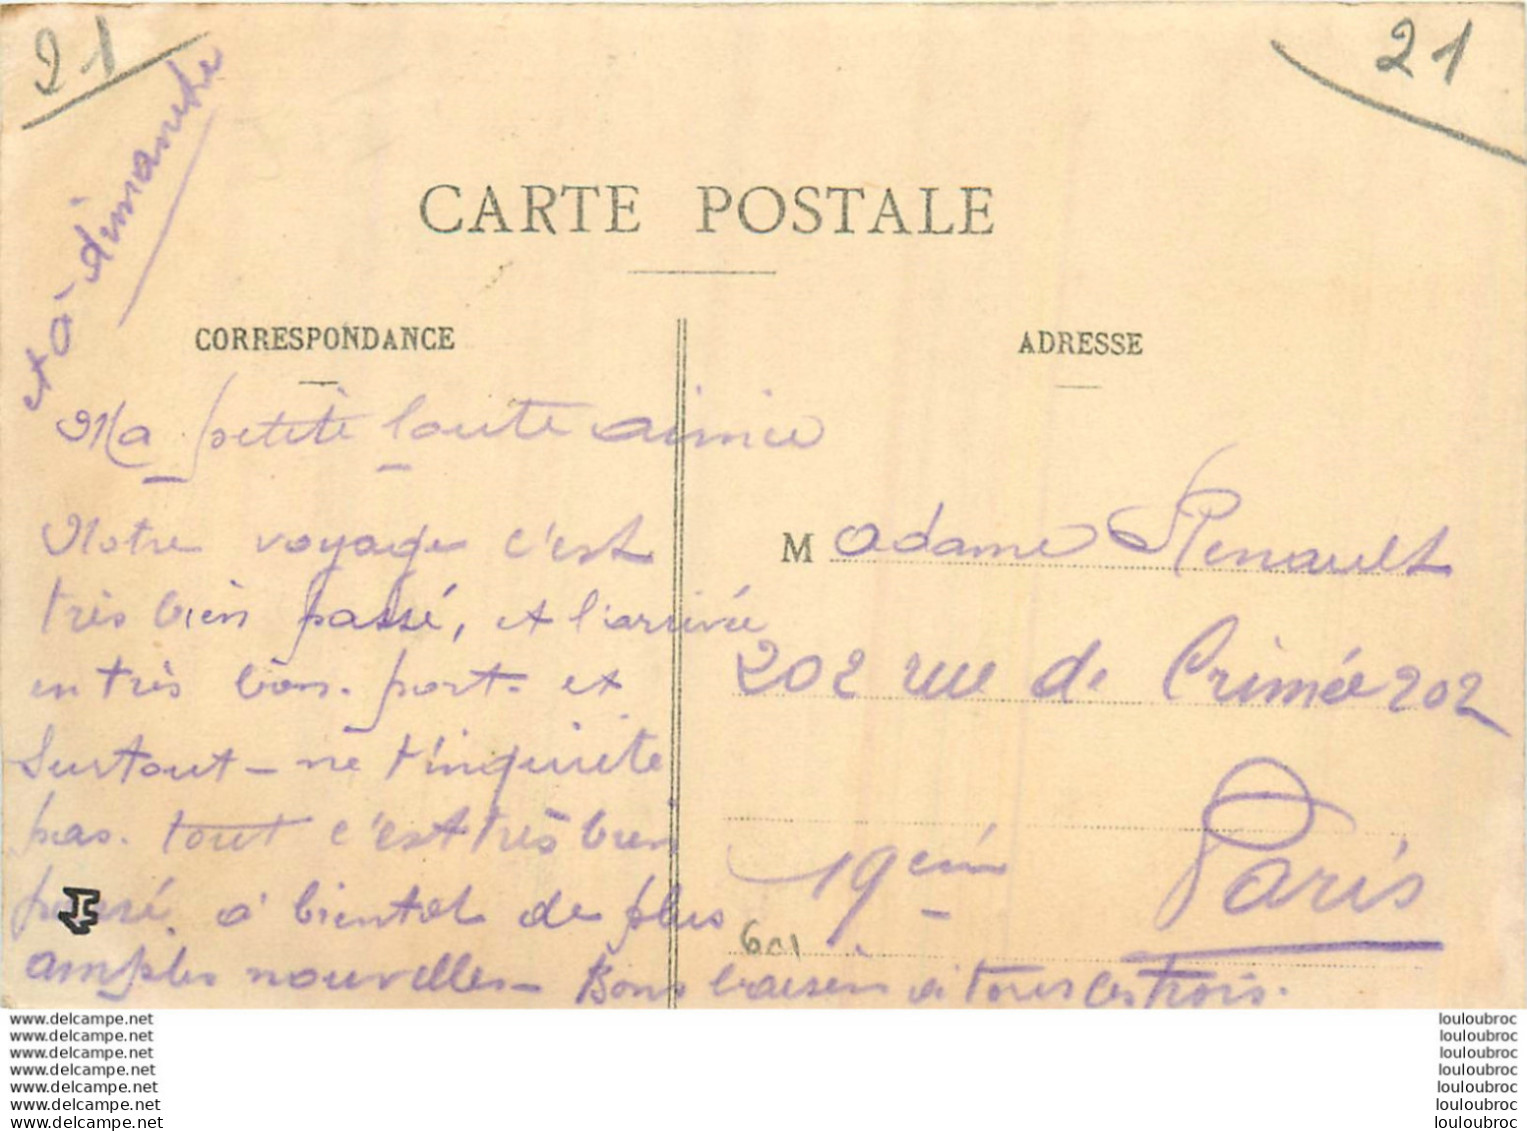 21
21
et à dimanche
CARTE POSTALE
CORRESPONDANCE
ADRESSE
Ma petite loute aimée
Notre voyage c'est
très bien passé, et l'arrivée
en très bon port et
surtout - ne t'inquiète
pas. tout c'est très bien
passé. à bientot de plus
amples nouvelles - Bons baisers à tous les trois.
Madame Renault
202 rue de Crimée 202
Paris
19em
601
www.delcampe.net
www.delcampe.net
www.delcampe.net
www.delcampe.net
www.delcampe.net
www.delcampe.net
www.delcampe.net
louloubroc
louloubroc
louloubroc
louloubroc
louloubroc
louloubroc
louloubroc